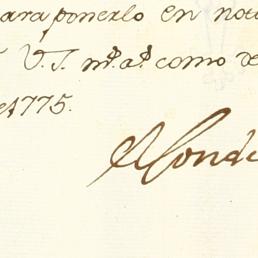 ara ponerlo en not
V. S. m.s a.s como de
e 1775.
El Conde